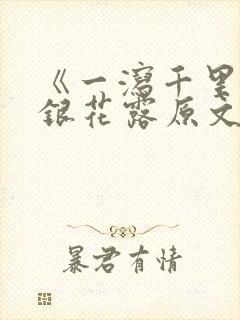 《一泻千里
银花露原文
暴君有情